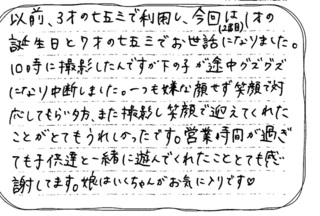 以前、3才の七五三で利用し、今回は(2回目)1才の
誕生日と7才の七五三でお世話になりました。
10時に撮影したんですが下の子が途中グズグズ
になり中断しました。一つも嫌な顔せず笑顔で対
応してもらい夕方、また撮影し笑顔で迎えてくれた
ことがとてもうれしかったです。営業時間が過ぎ
ても子供達と一緒に遊んでくれたこととても感
謝してます。娘はいくちゃんがお気に入りです♡